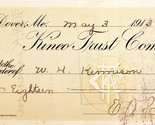 Dover, Me. May 3 1913
Kineo Trust Com
to the
order of W. H. Kennison
Eighteen